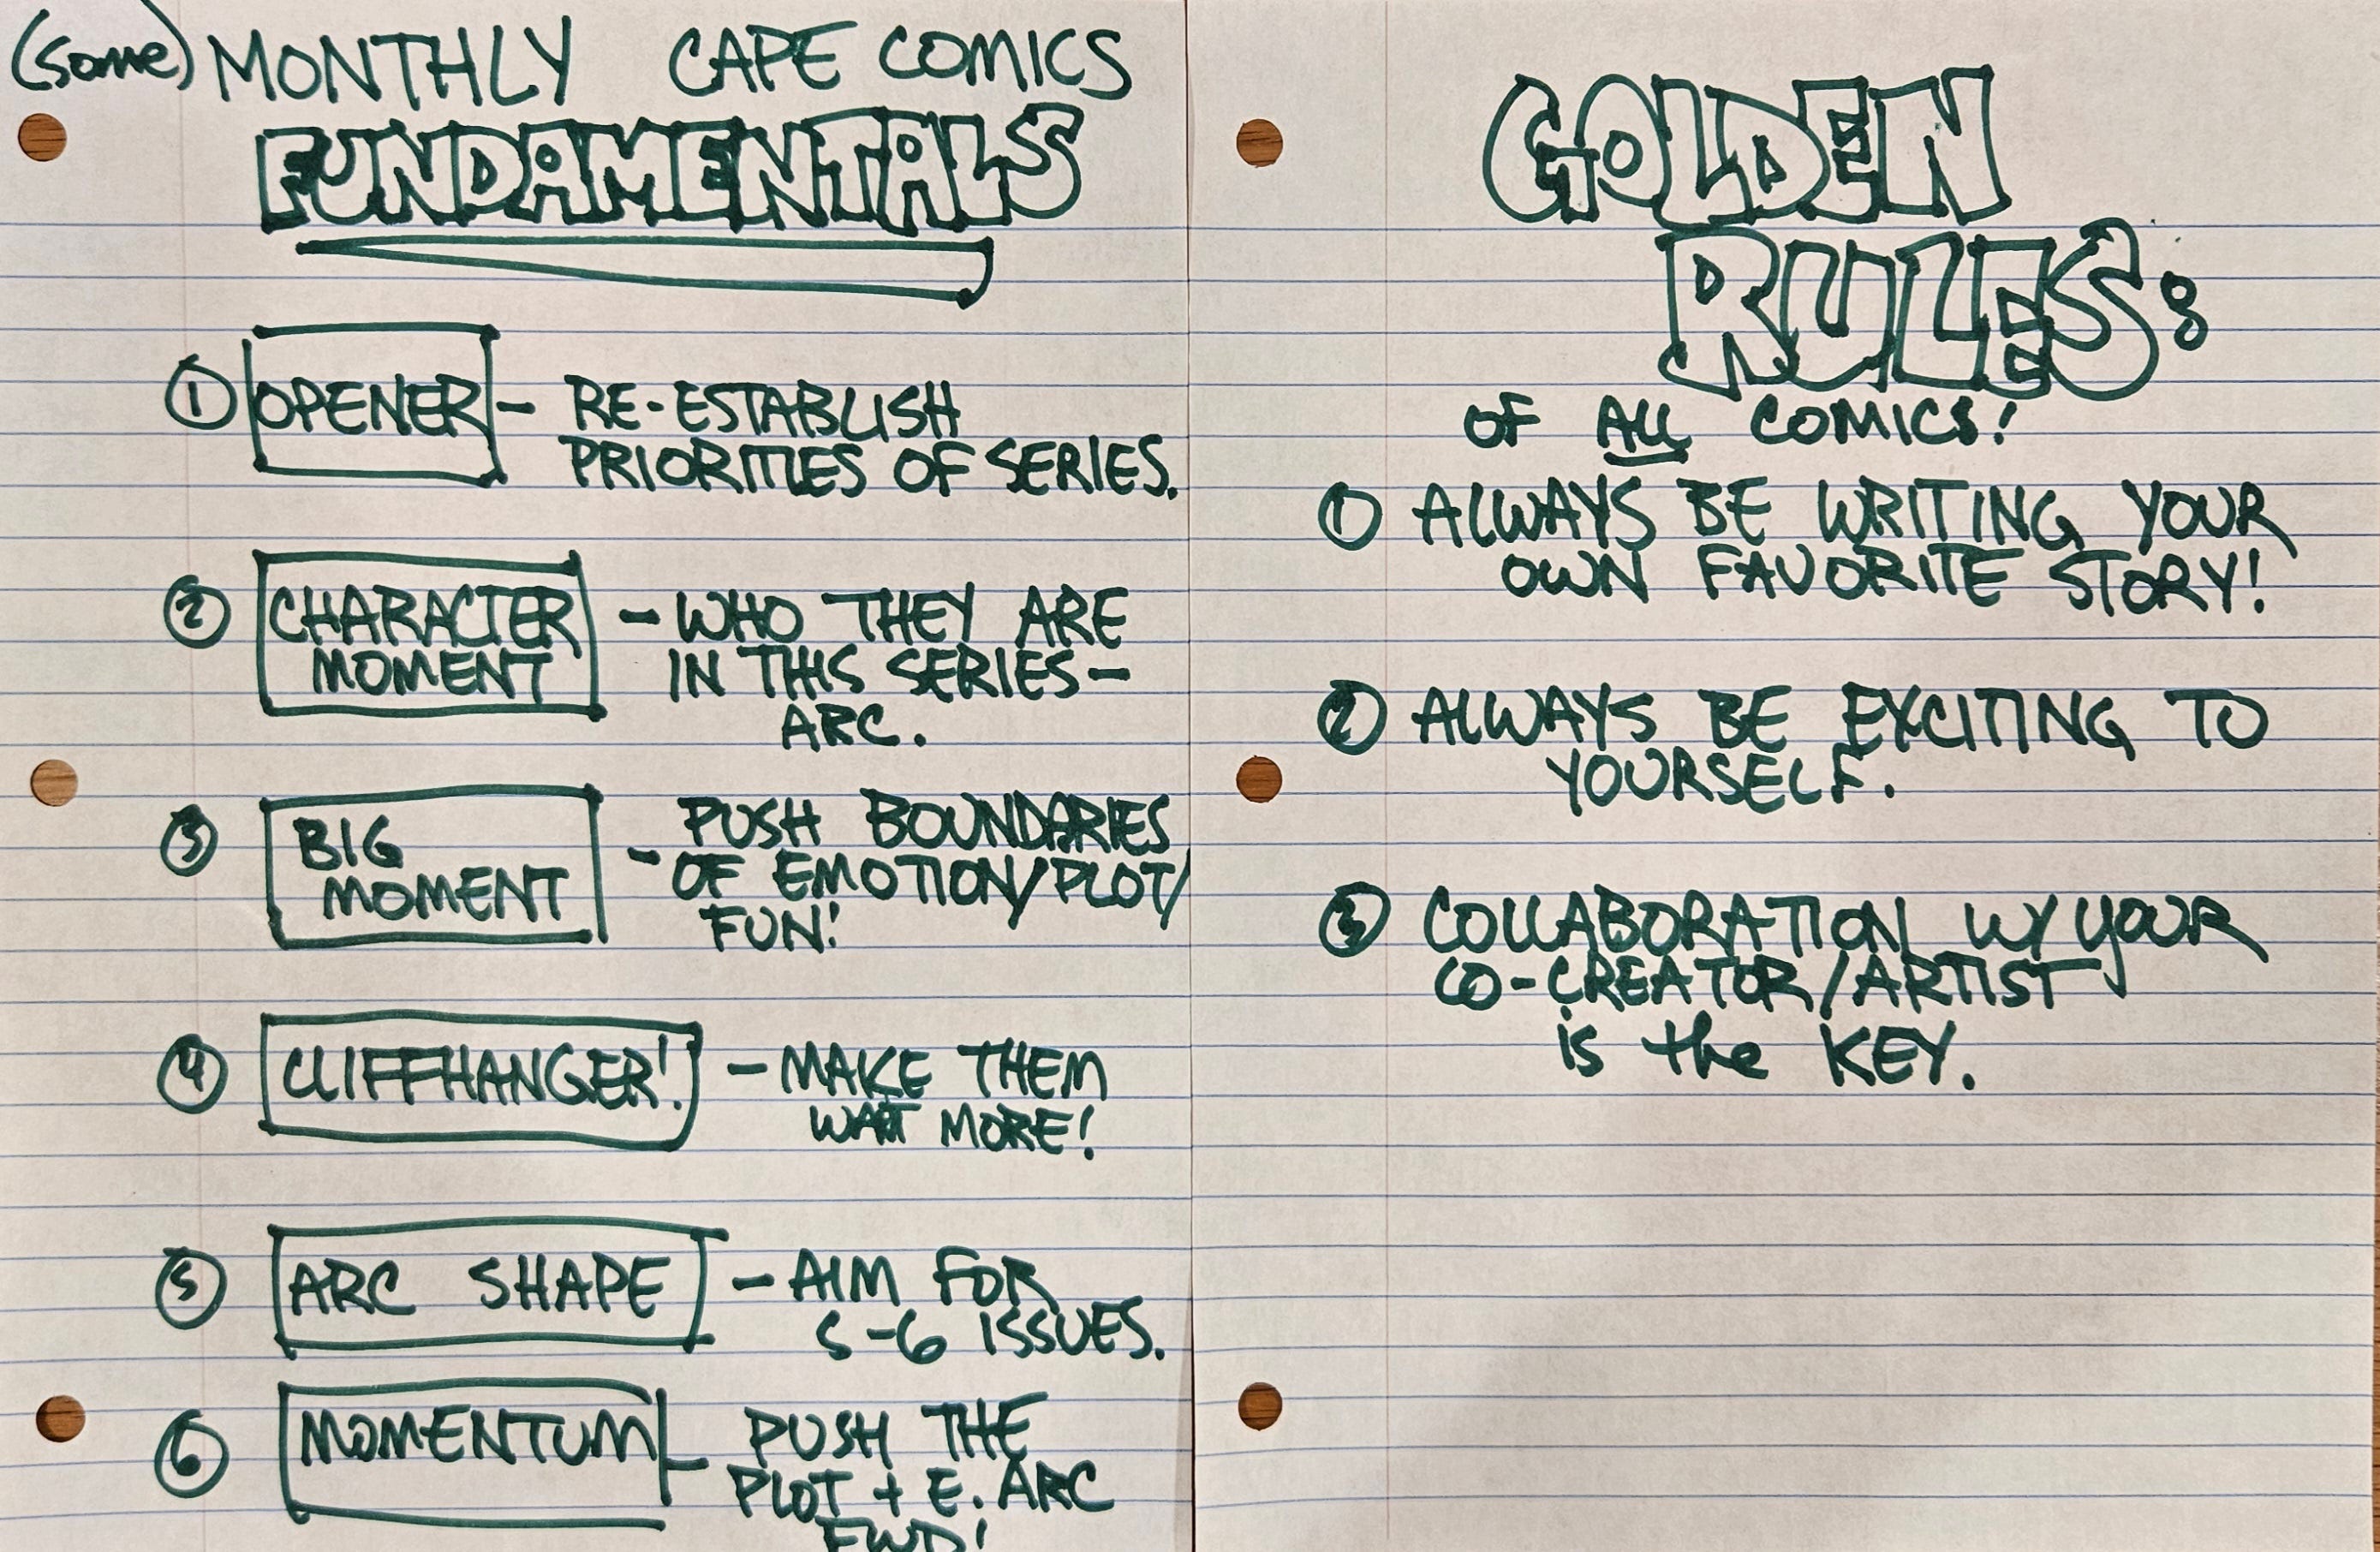 (some) MONTHLY CAPE COMICS
FUNDAMENTALS
① OPENER - RE-ESTABLISH
PRIORITIES OF SERIES.
② CHARACTER MOMENT - WHO THEY ARE
IN THIS SERIES -
ARC.
③ BIG MOMENT - PUSH BOUNDARIES
OF EMOTION/PLOT/
FUN!
④ CLIFFHANGER! - MAKE THEM
WANT MORE!
⑤ ARC SHAPE - AIM FOR
5-6 ISSUES.
⑥ MOMENTUM - PUSH THE
PLOT + E. ARC
FWD!
GOLDEN
RULES:
OF ALL COMICS!
① ALWAYS BE WRITING YOUR
OWN FAVORITE STORY!
② ALWAYS BE EXCITING TO
YOURSELF.
③ COLLABORATION W/ YOUR
CO-CREATOR/ARTIST
is the KEY.